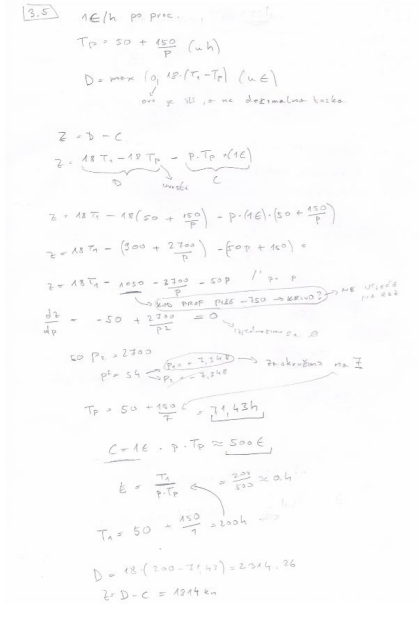 3.5 1€/h po proc.
Tp = 50 + 150/p (u h)
D = max (0, 18·(T₁-Tp) (u €)
ovo je ili, a ne decimalna točka
Z = D - C
Z = 18T₁ - 18Tp - p·Tp·(1€)
D C
Z = 18T₁ - 18(50 + 150/p) - p·(1€)·(50 + 150/p)
Z = 18T₁ - (900 + 2700/p) - (50p + 150) =
Z = 18T₁ - 1050 - 2700/p - 50p /' p
KOD PROF PIŠE -750 → KRIVO! → NE UTJEČE
dz/dp = -50 + 2700/p² = 0
50 p² = 2700
p² = 54 p₁ = 7,348 → zaokružimo na 7
p₂ = -7,348
Tp = 50 + 150/7 = 71,43h
C = 1€ · p · Tp ≈ 500€
E = T₁/p·Tp = 200/500 ≈ 0.4
T₁ = 50 + 150/1 = 200h
D = 18·(200-71,43) = 2314.26
Z = D - C = 1814 kn